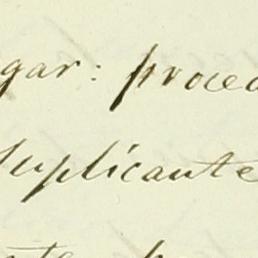 gar: proced
Suplicante